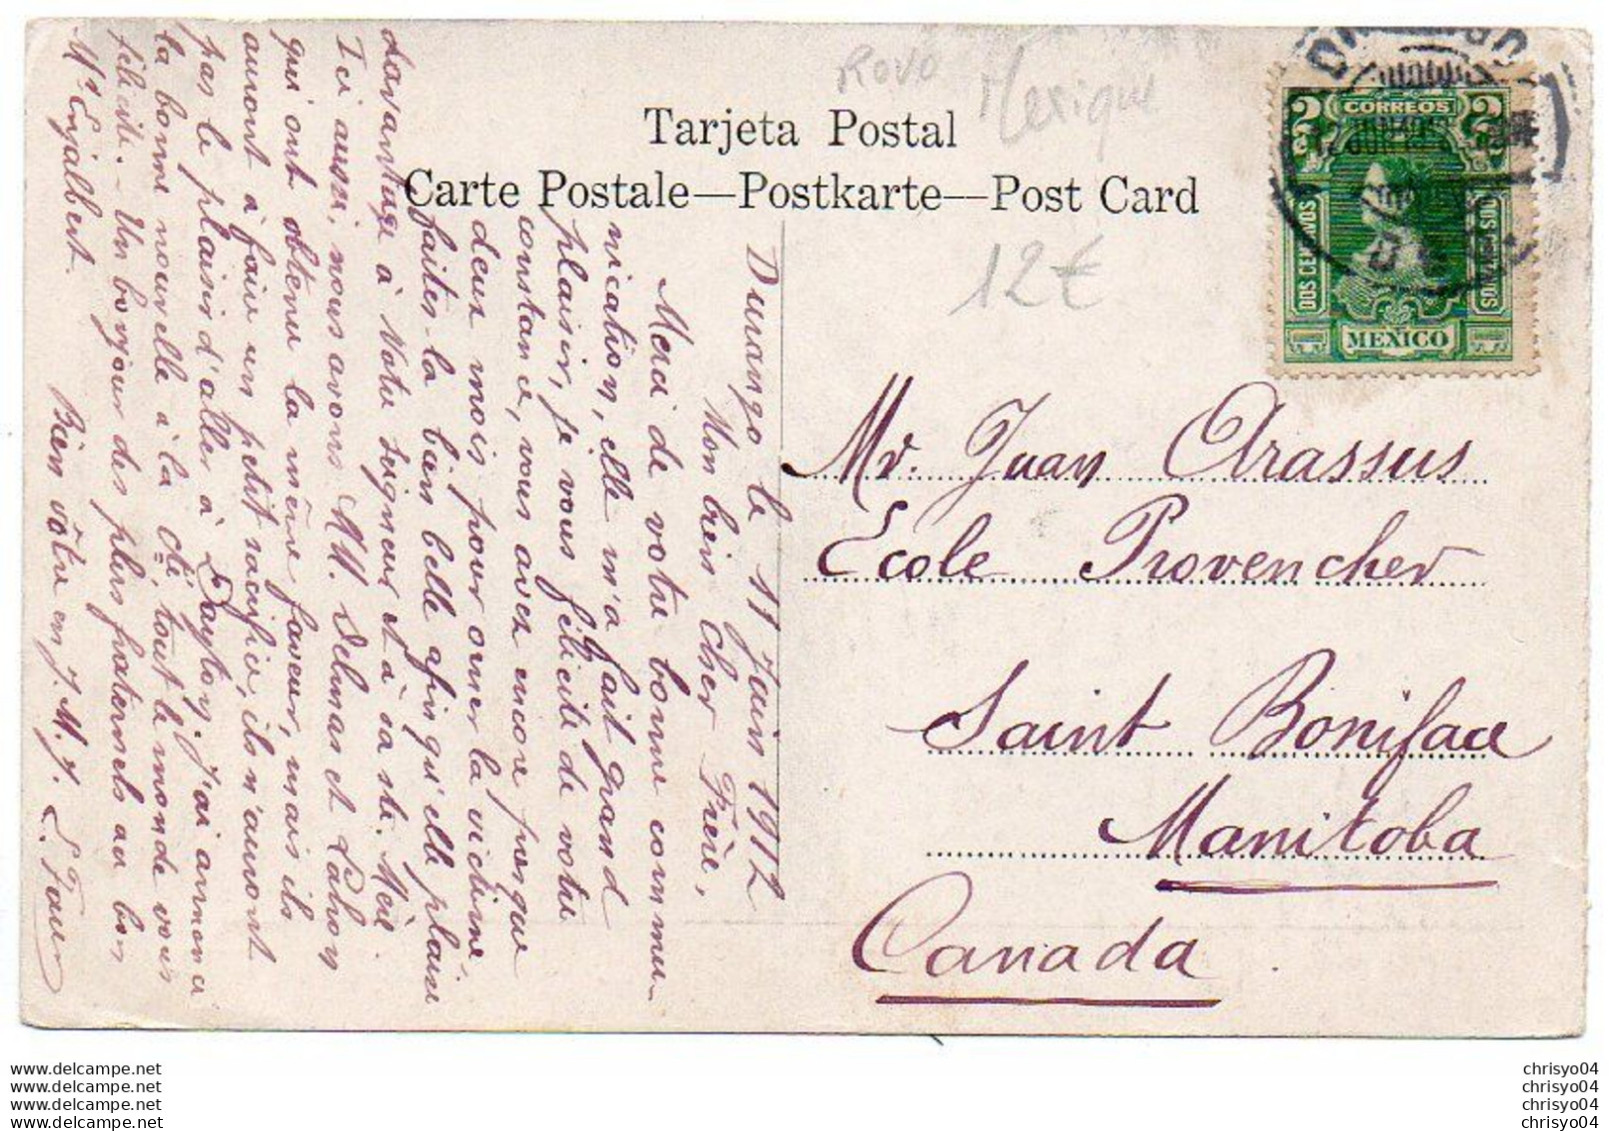 Rovo Mexique
Tarjeta Postal
Carte Postale—Postkarte—Post Card
12€
CORREOS
2 2
DOS CENTAVOS
MEXICO
Durango le 11 Juin 1912
Mon bien Cher Frère,
Merci de votre bonne commu-
nication, elle m'a fait grand
plaisir, je vous félicite de votre
constance, vous avez encore presque
deux mois pour orner la victime,
faites-la bien belle afin qu'elle plaise
davantage à Notre Seigneur et à sa ste. Mère.
Ici aussi, nous avons MM. Delmas et Lahon
qui ont obtenu la même faveur, mais ils
auront à faire un petit sacrifice, ils n'auront
pas le plaisir d'aller à Dayton. J'ai annoncé
la bonne nouvelle à la Cté, tout le monde vous
félicite. - Un bonjour des plus fraternels au bon
Mr Enjalbert.
Bien vôtre en J. M. J.
Mr. Juan Arassus
Ecole Provencher
Saint Boniface
Manitoba
Canada
www.delcampe.net
www.delcampe.net
www.delcampe.net
www.delcampe.net
chrisyo04
chrisyo04
chrisyo04
chrisyo04